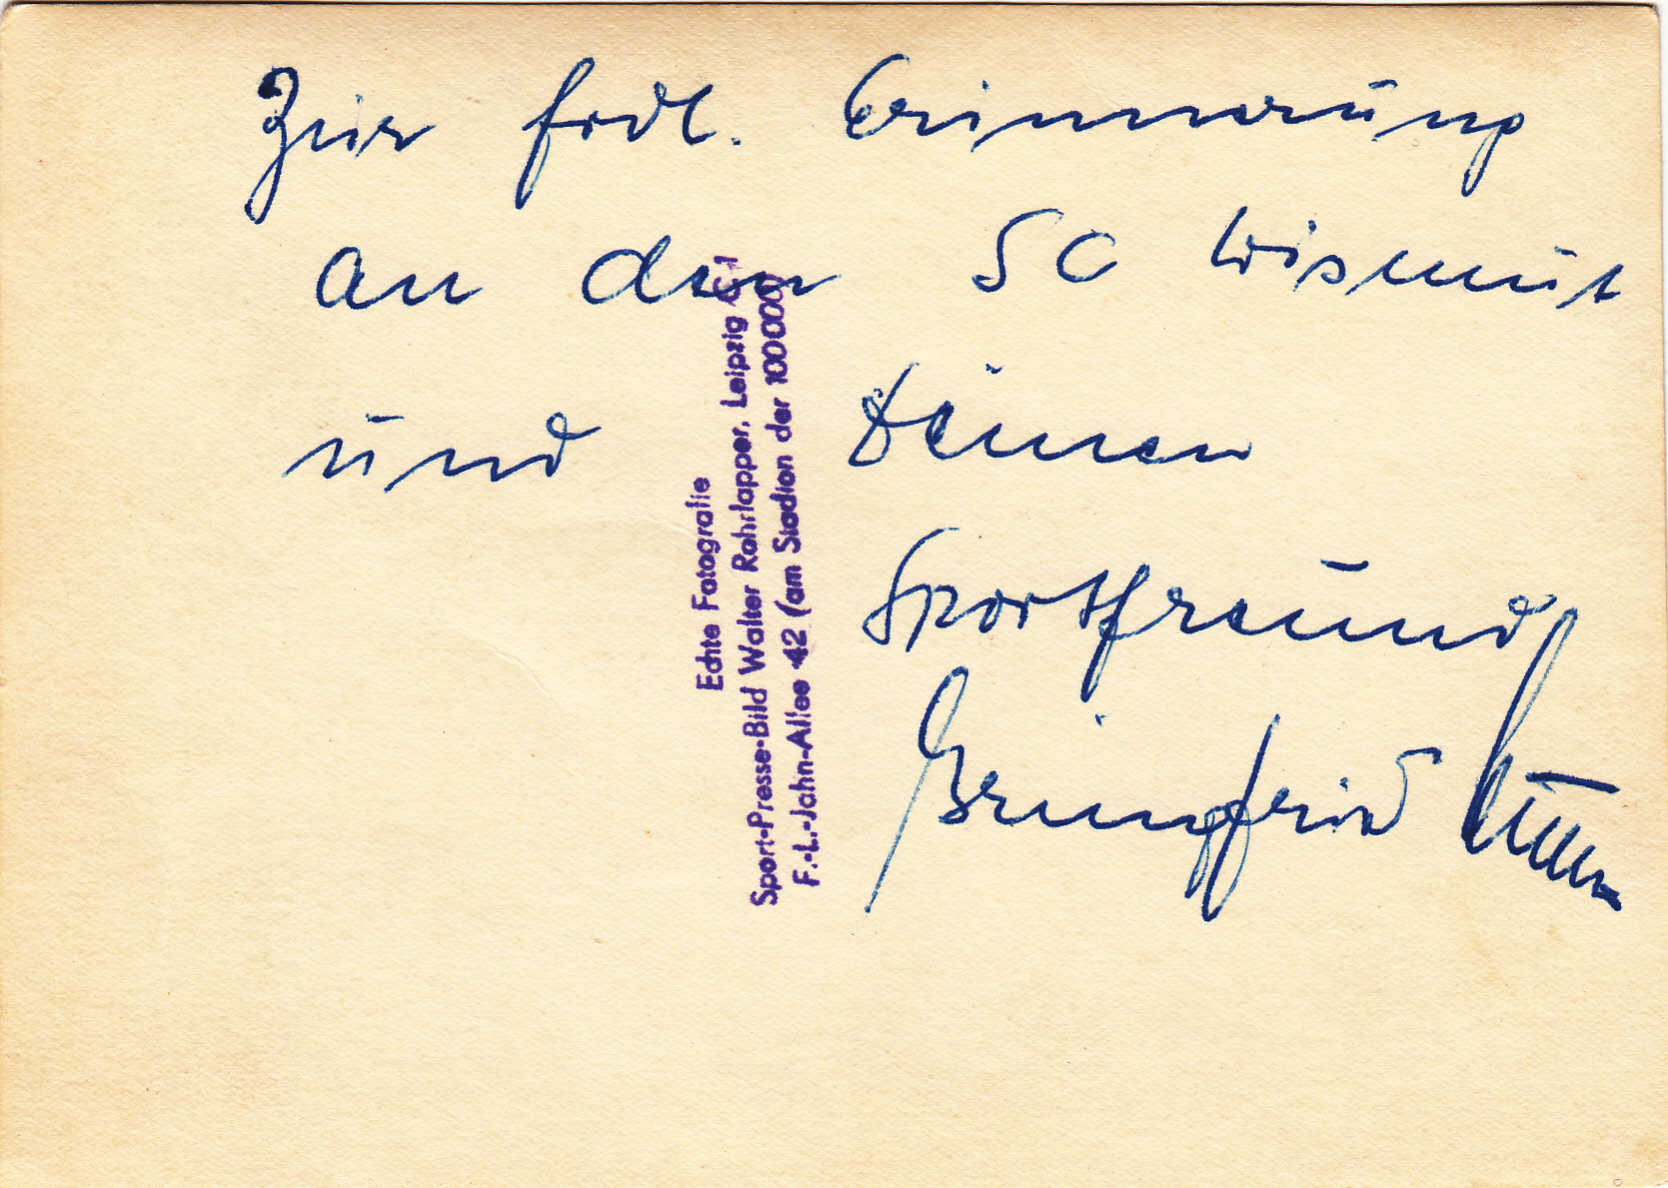 Zur frdl. Erinnerung
an den SC Wismut
und Deinen
Sportfreund
Bringfried Müller
Echte Fotografie
Sport-Presse-Bild Walter Rohrlapper, Leipzig C 1
F.-L.-Jahn-Allee 42 (am Stadion der 100000)